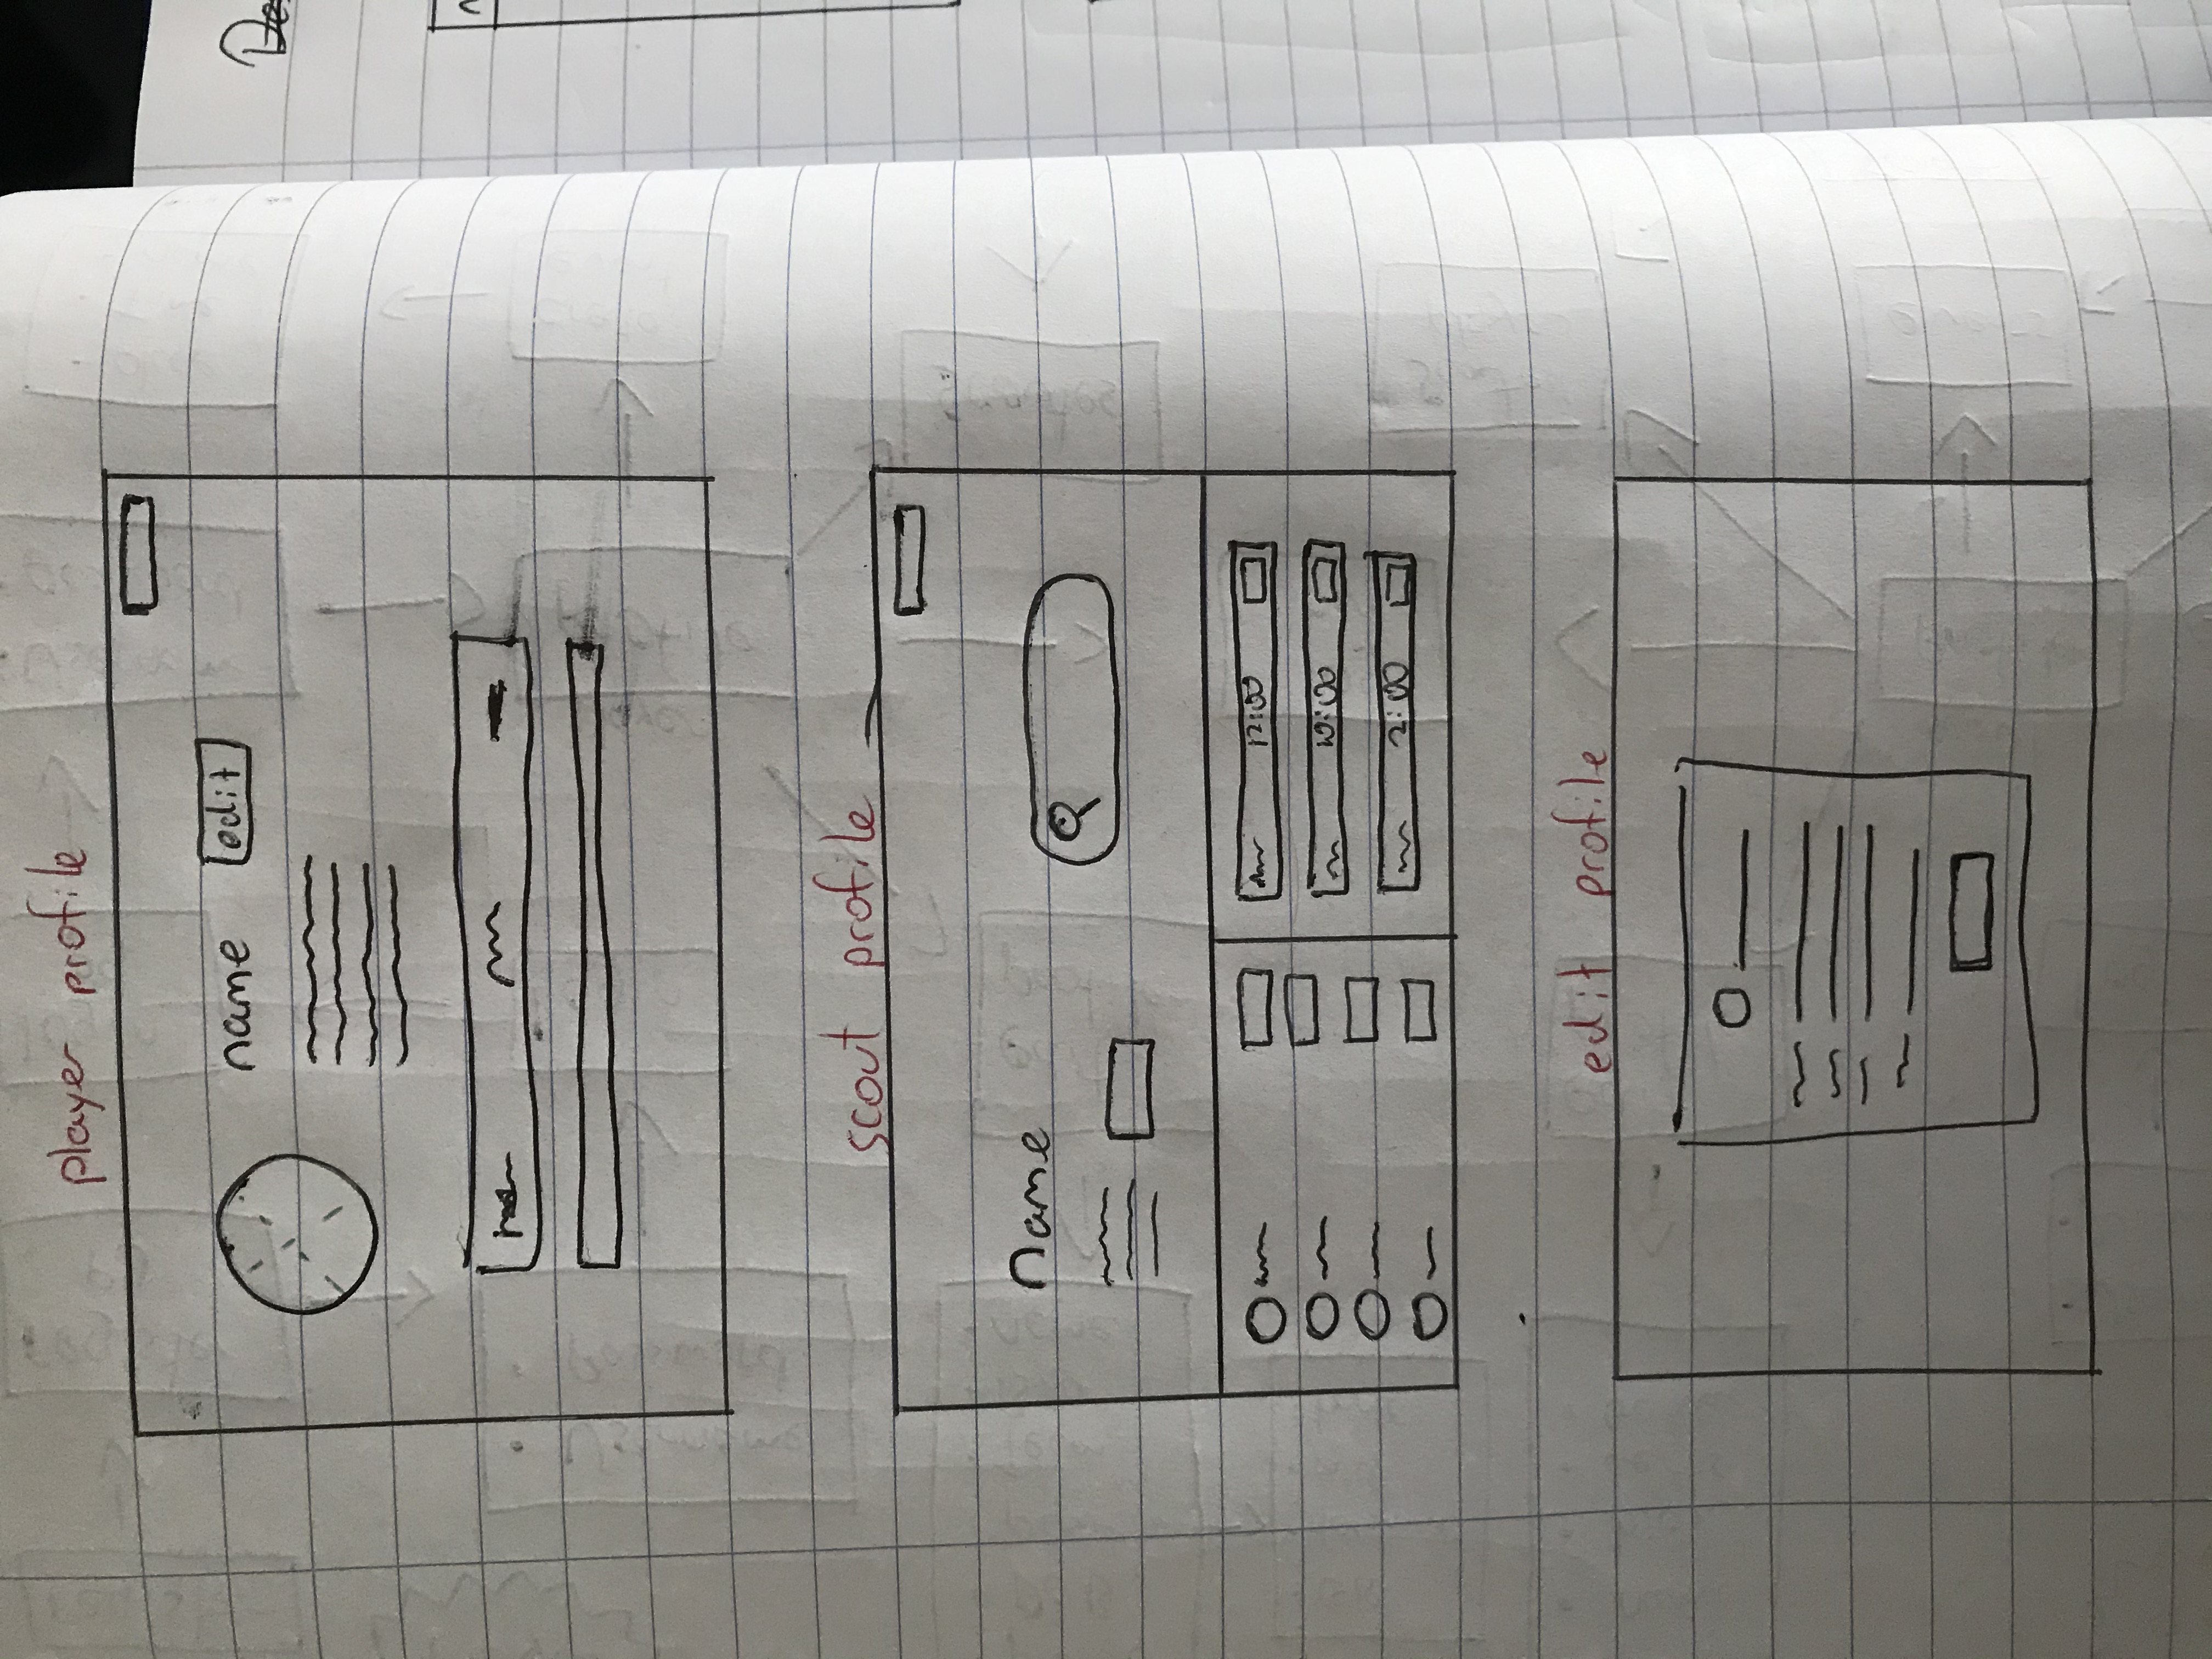 player profile
name edit
scout profile
name
12:00
10:00
2:00
edit profile